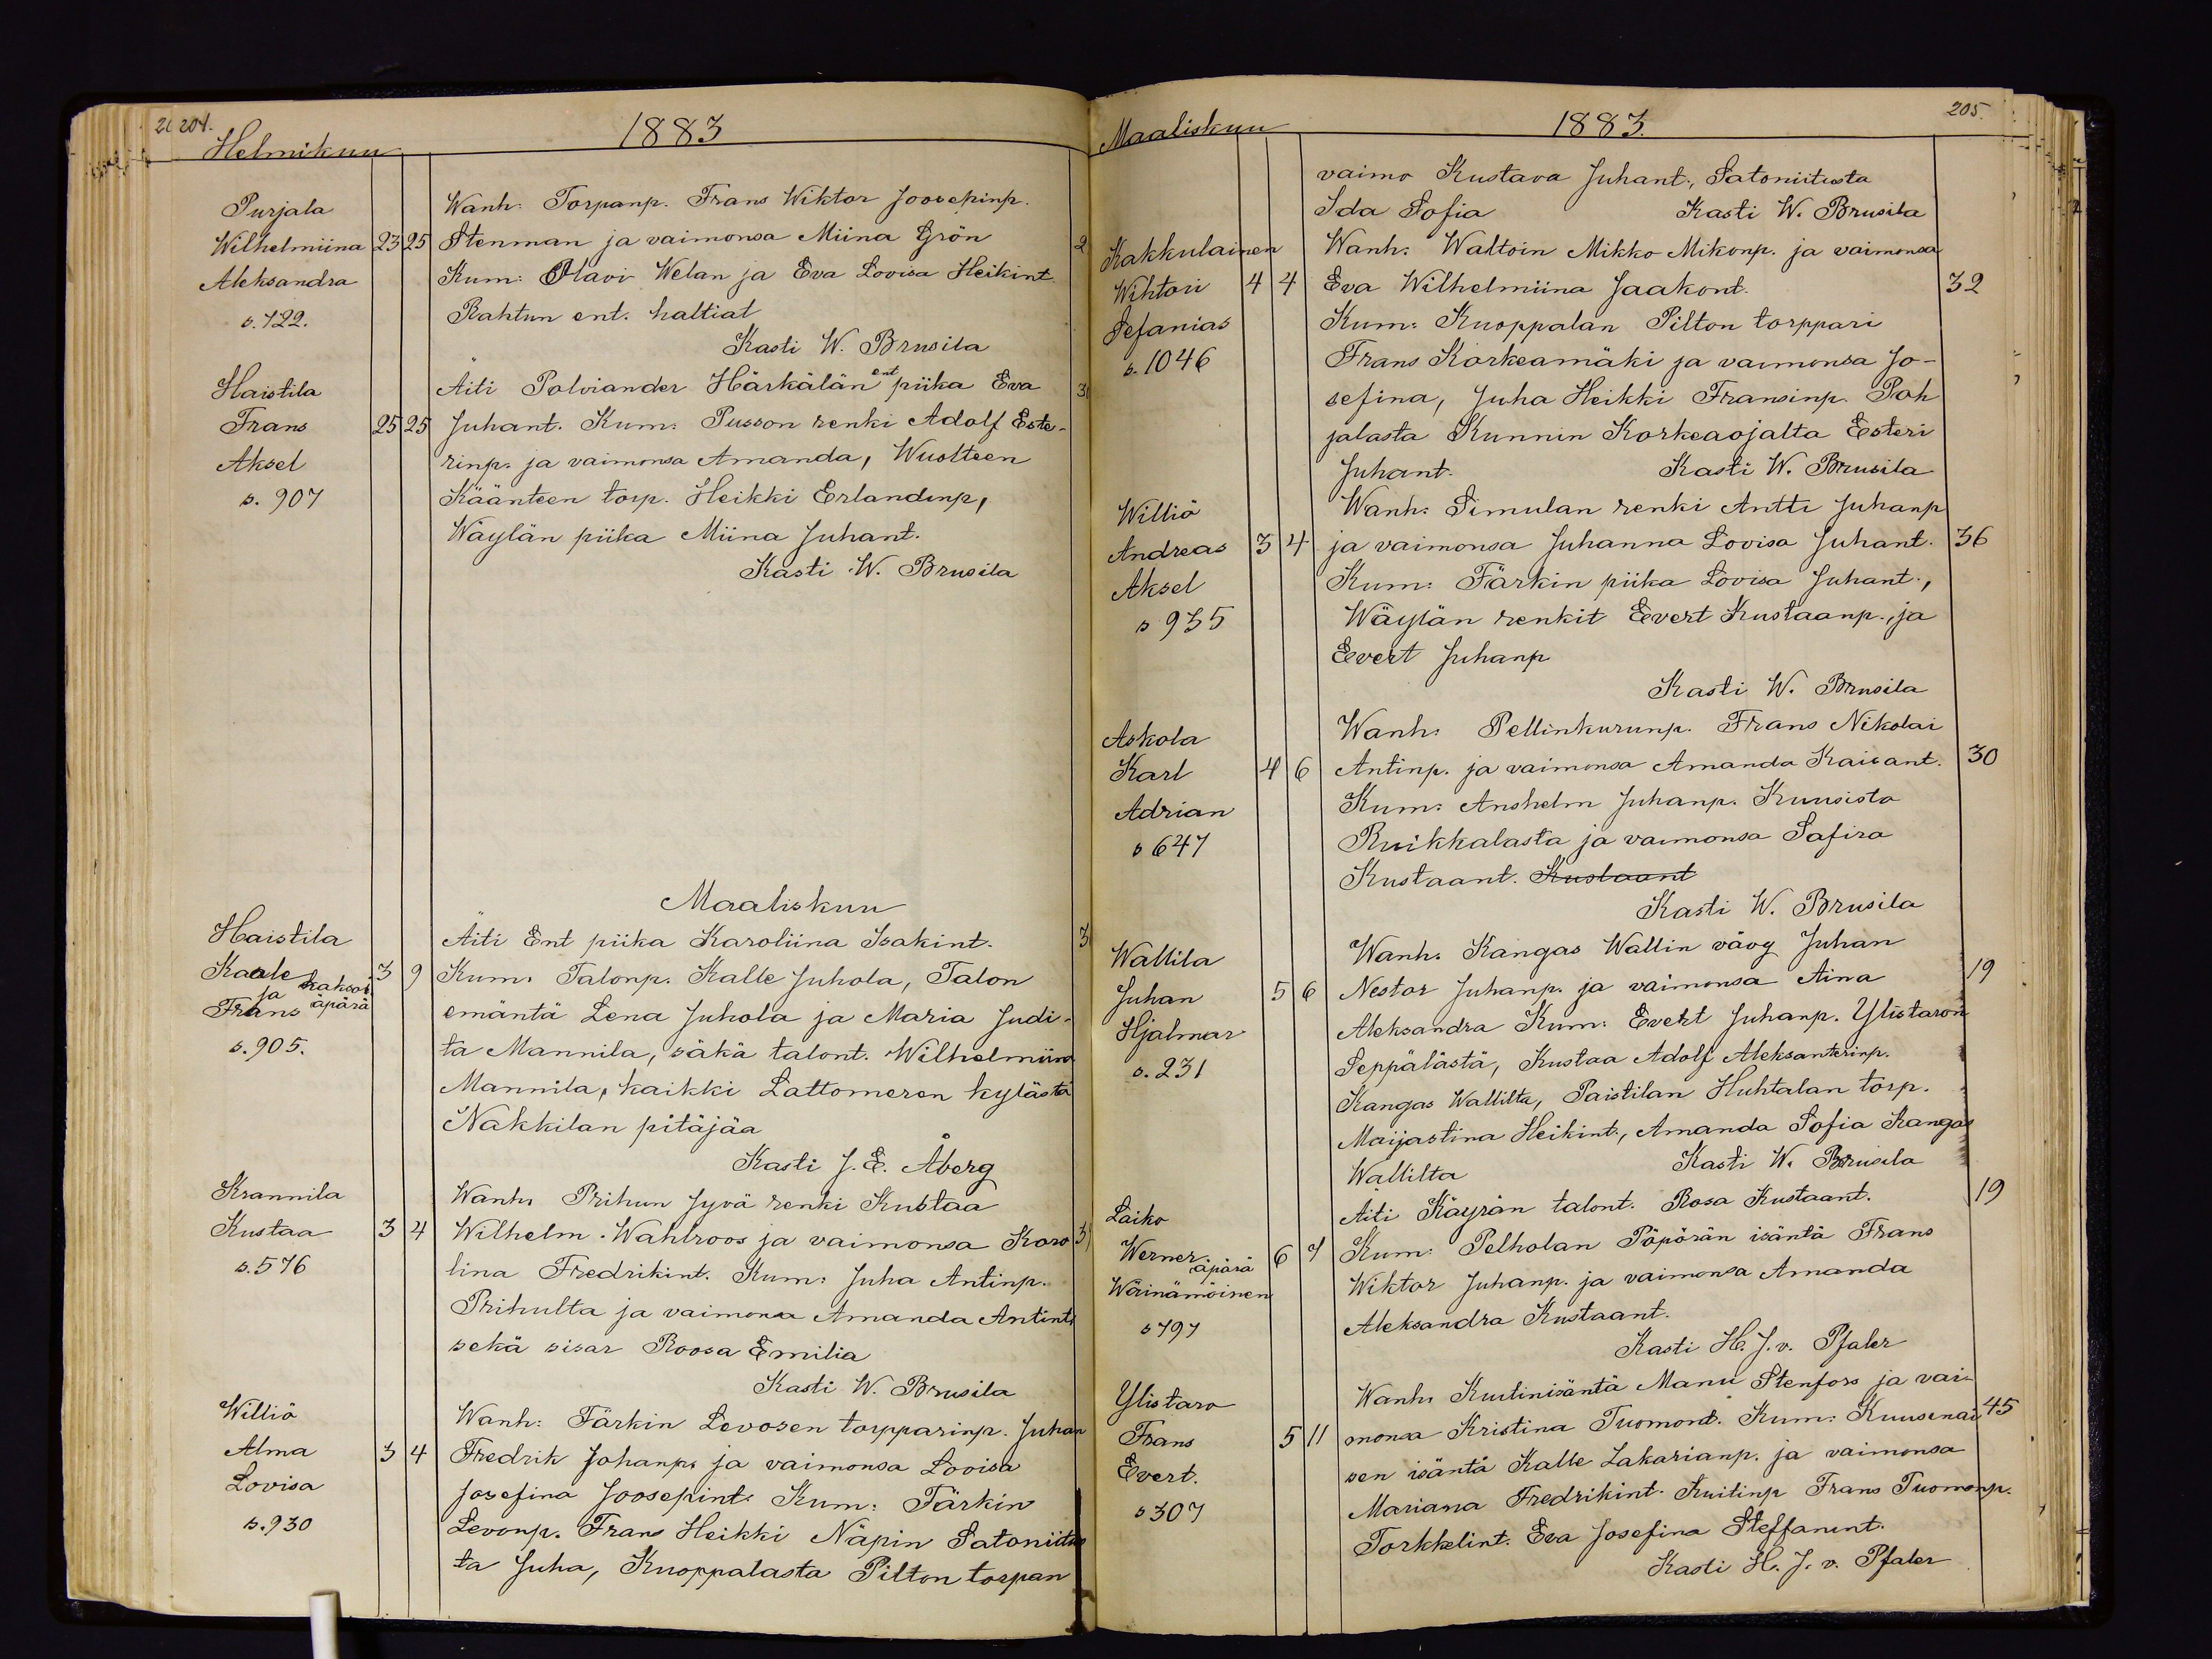 204.
Helmikuu
1883
Purjala
Wanh: Torpanp. Frans Wiktor Joosepinp.
Wilhelmiina 23 25 Stenman ja vaimonsa Miina Grön 2
Aleksandra
Kum: Olavi Welan ja Eva Lovisa Heikint.
s. 722.
Rahtun ent. haltiat
Kasti W. Brusila
Haistila
Äiti Polviander Härkälän ent piika Eva 3
Frans 25 25 Juhant. Kum: Pusson renki Adolf Este-
Aksel
rinp. ja vaimonsa Amanda, Wuolteen
s. 907
Käänteen torp. Heikki Erlandinp,
Wäylän piika Miina Juhant.
Kasti W. Brusila
Maaliskuu
Haistila
Äiti Ent piika Karoliina Isakint. 3
Kaale 3 9 Kum: Talonp. Kalle Juhola, Talon
ja kaksoi
Frans äpärä
emäntä Lena Juhola ja Maria Judi-
s. 905.
ta Mannila, säkä talont. Wilhelmiina
Mannila, kaikki Lattomeron kylästä
Nakkilan pitäjää
Kasti J. E. Åberg
Krannila
Wanh: Prihun Jyvä renki Kustaa
Kustaa 3 4 Wilhelm Wahlroos ja vaimonsa Karo 3
s. 576
lina Fredrikint. Kum: Juha Antinp.
Prihulta ja vaimonsa Amanda Antint.
sekä sisar Roosa Emilia
Kasti W. Brusila
Williö
Wanh: Färkin Levosen torpparinp. Juhan
Alma 3 4 Fredrik Johanp. ja vaimonsa Lovisa
Lovisa
Josefina Joosepint. Kum: Tärkin
s. 930
Levonp. Frans Heikki Näpin Satoniitus
ta Juha, Knoppalasta Pilton torpan
Maaliskuu
1883.
205.
vaimo Kustava Juhant., Satoniitusta
Ida Sofia Kasti W. Brusila
Kakkulainen
Wanh: Waltoin Mikko Mikonp. ja vaimonsa
Wihtori 4 4 Eva Wilhelmiina Jaakont. 32
Sefanias
Kum: Kuoppalan Pilton torppari
s. 1046
Frans Korkeamäki ja vaimonsa Jo-
sefina, Juha Heikki Fransinp. Poh
jalasta Kunnin Korkeaojalta Esteri
Juhant. Kasti W. Brusila
Williö
Wanh: Simulan renki Antti Juhanp
Andreas 3 4 ja vaimonsa Juhanna Lovisa Juhant. 36
Aksel
Kum: Färkin piika Lovisa Juhant.,
s 935
Wäylän renkit Evert Kustaanp., ja
Evert Juhanp
Kasti W. Brusila
Askola
Wanh: Pellinkurunp. Frans Nikolai
Karl 4 6 Antinp. ja vaimonsa Amanda Kaisant. 30
Adrian
Kum: Anshelm Juhanp. Kuusisto
s 647
Ruikkalasta ja vaimonsa Safira
Kustaant. Kustaant
Kasti W. Brusila
Wallila
Wanh. Kangas Wallin vävy Juhan
Juhan 5 6 Nestor Juhanp. ja vaimonsa Aina 19
Hjalmar
Aleksandra Kum: Evert Juhanp. Ylistaron
s. 231
Seppälästä, Kustaa Adolf Aleksanterinp.
Kangas Wallilta, Paistilan Huhtalan torp.
Maijastina Heikint., Amanda Sofia Kangas
Wallilta Kasti W. Brusila
Laiko
Äiti Käyrän talont. Rosa Kustaant. 19
Werner äpärä 6 7 Kum: Pelholan Pöpörän isäntä Frans
Wäinämöinen
Wiktor Juhanp. ja vaimonsa Amanda
s 797
Aleksandra Kustaant.
Kasti H. J. v. Pfaler
Ylistaro
Wanh. Kuutinisäntä Manu Stenfors ja vai-
Frans 5 11 monsa Kristina Tuomont. Kum: Kuusenai 45
Evert.
sen isäntä Kalle Zakarianp. ja vaimonsa
s 307
Mariana Fredrikint. Kuitinp Frans Tuomonp.
Torkkelint. Eva Josefina Steffanint.
Kasti H. J. v. Pfaler